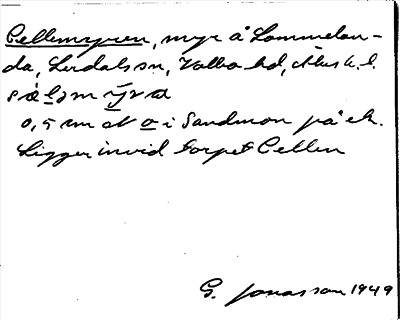 Cellemyren, myr å Lommelan-
da, Lerdals sn, Valbo hd, Älvsb. l.
0,5 cm at o i Sandmon på ek.
Ligger invid torpet Cellen
G. Jonasson 1949